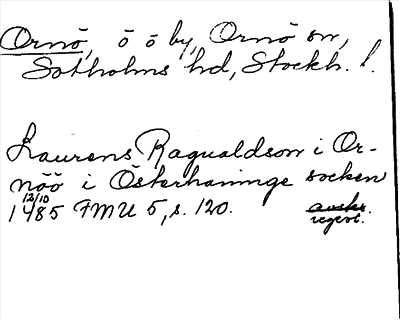 Ornö, ö o by, Ornö sn,
Sotholms hd, Stockh. l.
Laurens Ragualdson i Or-
nöö i Österhaninge socken
12/10
1485 FMU 5, s. 120.
avskr.
regest.